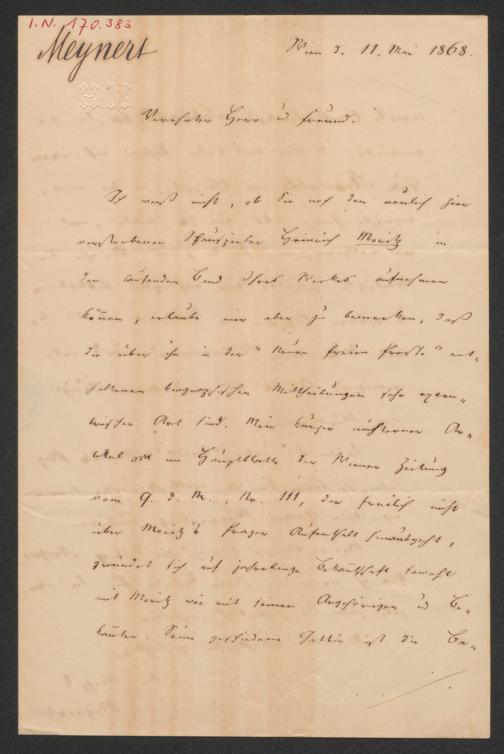 I.N. 170.383
Meynert
Wien d. 11. Mai 1868.
Verehrter Herr und Freund.
Ich weiß nicht, ob Sie noch den neulich hier
verstorbenen Schauspieler Heinrich Moritz in
den laufenden Band Ihres Werkes aufnehmen
können, erlaube mir aber zu bemerken, daß
die über ihn in der "Neuen freien Presse" ent-
haltenen biographischen Mittheilungen sehr
Art sind. Mein kurzer nüchterner Ar-
tikel im Hauptblatte der Wiener Zeitung
vom 9. d. M., No. 111, der freilich nicht
über Moritz's Prager Aufenthalt hinausgeht,
gründet sich auf jahrelange Bekanntschaft sowohl
mit Moritz wie mit seinen Angehörigen und Be-
kannten. Seine geschiedene Gattin ist die Be-